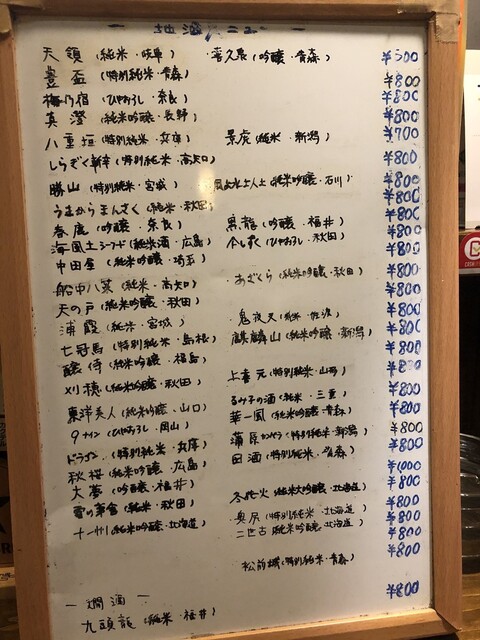 天領(純米・岐阜) 喜久泉(吟醸・青森) ¥500
豊盃(特別純米・青森) ¥800
梅乃宿(ひやおろし・奈良) ¥800
真澄(純米吟醸・長野) ¥800
八重垣(特別純米・兵庫) 景虎(純米・新潟) ¥700
しらぎく(特別純米・高知) ¥800
勝山(特別純米・宮城) (純米吟醸・石川) ¥800
うまからまんさく(純米・秋田) ¥800
春鹿(吟醸・奈良) 黒龍(吟醸・福井) ¥800
海風土シーフード(純米酒・広島) (ひやおろし・秋田) ¥800
中田屋(純米吟醸・埼玉) ¥800
船中八策(純米・高知) あざくら(純米吟醸・秋田) ¥800
天の戸(純米・秋田) ¥800
浦霞(純米・宮城) 鬼夜叉(純米・佐渡) ¥800
七冠馬(特別純米・島根) 麒麟山(純米吟醸・新潟) ¥800
醸侍(純米吟醸・福島) ¥800
刈穂(純米吟醸・秋田) 上喜元(特別純米・山形) ¥800
東洋美人(純米吟醸・山口) るみ子の酒(純米・三重) ¥800
9ナイン(ひやおろし・岡山) 華一風(純米吟醸・青森) ¥800
ドラゴン(特別純米・兵庫) 蒲原(特別純米・新潟) ¥800
秋桜(純米吟醸・広島) 田酒(特別純米・青森) ¥800
大夢(吟醸・福井) 冬花火(純米大吟醸・北海道) ¥1000
雪の茅舎(純米・秋田) 奥尻(特別純米・北海道) ¥800
十一州(純米吟醸・北海道) 二世古(純米吟醸・北海道) ¥800
松前城(特別純米・青森) ¥800
― 燗酒 ―
九頭龍(純米・福井) ¥800